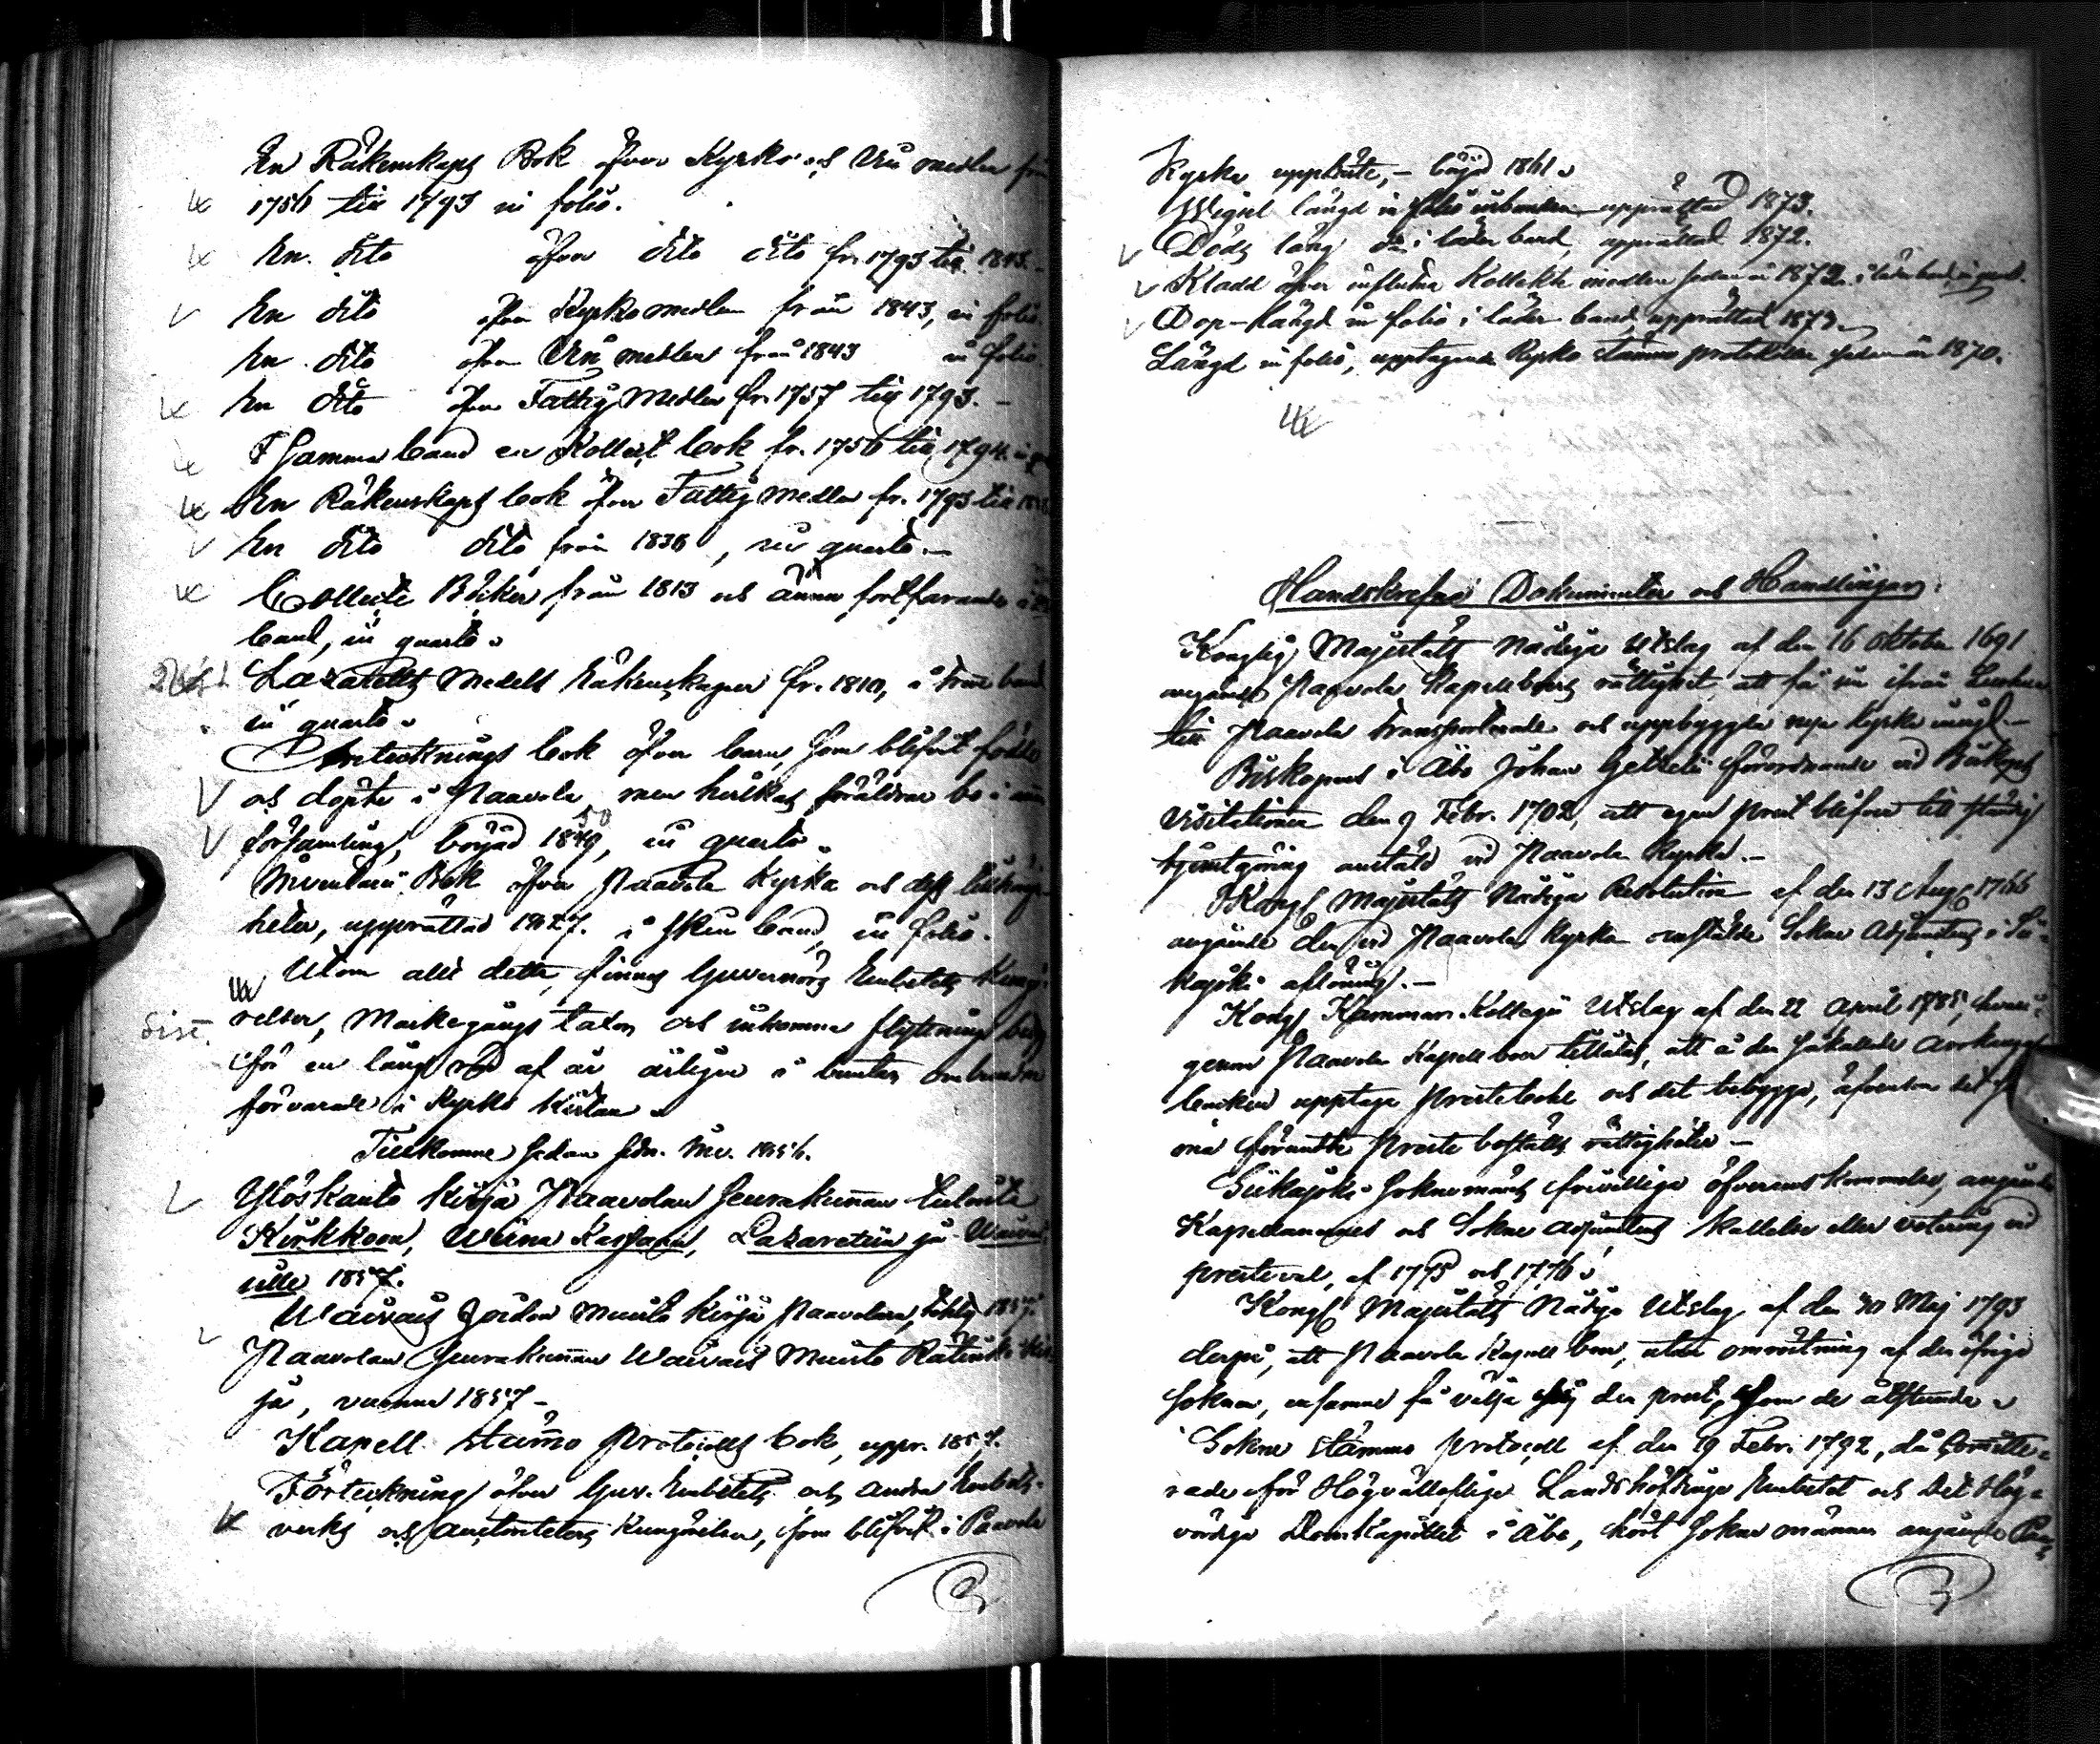 En Räkenskaps Bok öfver Kyrko och Vin medlen från
1756 till 1793 in folio.
En dito öfver dito dito fr. 1793 till 1843.
En dito öfver Kyrko medlen från 1843, in folio.
En dito öfver Vin medlen från 1843 in folio
En dito öfver Fattig Medlen fr. 1757 till 1793. –
I samma band en Kollect bok fr. 1756 till 1794.
En Räkenskaps bok öfver Fattig medlen fr. 1793 till
En dito dito från 1838, in quarto. –
Collecte Böcker från 1813 och ännu fortfarande i
band, in quarto.
Lazaretts Medels Räkenskaper fr. 1810, i band
in quarto.
Anteknings bok öfver barn, som blifvit födde
och döpte i Paavola men hvilkas föräldrar bo i
församling, börjad 1849, in quarto.
50
Inventarii Bok öfver Paavola Kyrka och dess
heter, upprättad 1827. i skin band, in folio.
Utom allt detta, finnas Guvernörs Embetets Kungö-
relser, Markegångs taxor och inkomne flyttnings
för en lång rad af år årligen i buntar ombundne
förvarade i Kyrko kistan.
Tillkomne sedan sedn. Inv. 1856.
Ylöskanto kirja Paavolan seurakunnan tuloista
Kirkkoon, Wiina Kassaan, Lazaretiin ja Waivai-
sille 1857.
Waivais hoidon Muisto kirja Paavolassa, tehty 1857.
Paavolan Seurakunnan Waivais Muisto Räkinki Kir-
ja, vuonna 1857 –
Kapell stämo Protocolls bok, uppr. 1857.
Förtekning öfver Guv. Embetets och andra Embets-
verks och auctoriteters Kungörelser, som blifvit i Paavola
Kyrka uppläste, – börjad 1861.
Wigsel längd in folio inbunden upprättad 1873.
Döds läng i läder band, upprättad 1872.
Kladd öfver influtna Kollekt medlen sedan år 1872. i läder band
Dop-längd in folio i läder band upprättad 1873.
Längd in folio, upptagande Kyrko stämmo protokoller sedan år 1870.
Handskrefne Dokumenter och Handlingar.
Konglig Majestäts Nådiga Utslag af den 16 Oktober 1691
angående Paavola Kapellboers rättighet, att få sin ifrån
till Paavola transporterade och uppbyggda nya Kyrka
Biskopens i Åbo Johan Gezelii förordnande vid Biskops
Visitationen den 9 Febr. 1702, att egen prest blifver till ständig
tjenstgöring anstäld vid Paavola Kyrka. –
Kongl. Majestäts Nådiga Resolution af den 13 Aug. 1766
angående den vid Paavola Kyrka anstälde Sokne Adjunctens i Si-
kajoki aflöning. –
Kongl. Kammar Kollegii Utslag af den 22 April 1785, hvari-
genom Paavola Kapell boer tillåtas, att å den såkallade
backen upptaga Prestebohl och det bebygga, äfvensom
Prestebohl rättigheter –
Siikajoki Soknemäns frivilliga öfverens kommelse, angående
Kapellanernes och Sokne adjunctens kallelse eller votering vid
presteval, af 1775 och 1776.
Kongl. Majestäts Nådiga Utslag af den 30 Maj 1793
derpå, att Paavola Kapell boer, utan omröstning af den öfriga
soknen, ensamme få välja sig den prest, som de åstunda.
Sokne stämmo protocoll af den 19 Febr. 1792, då
rade för Högvälloflige Landshöfdinge Embetet och Det Hög-
vördiga Domkapitlet i Åbo, hört Sokne männen angående